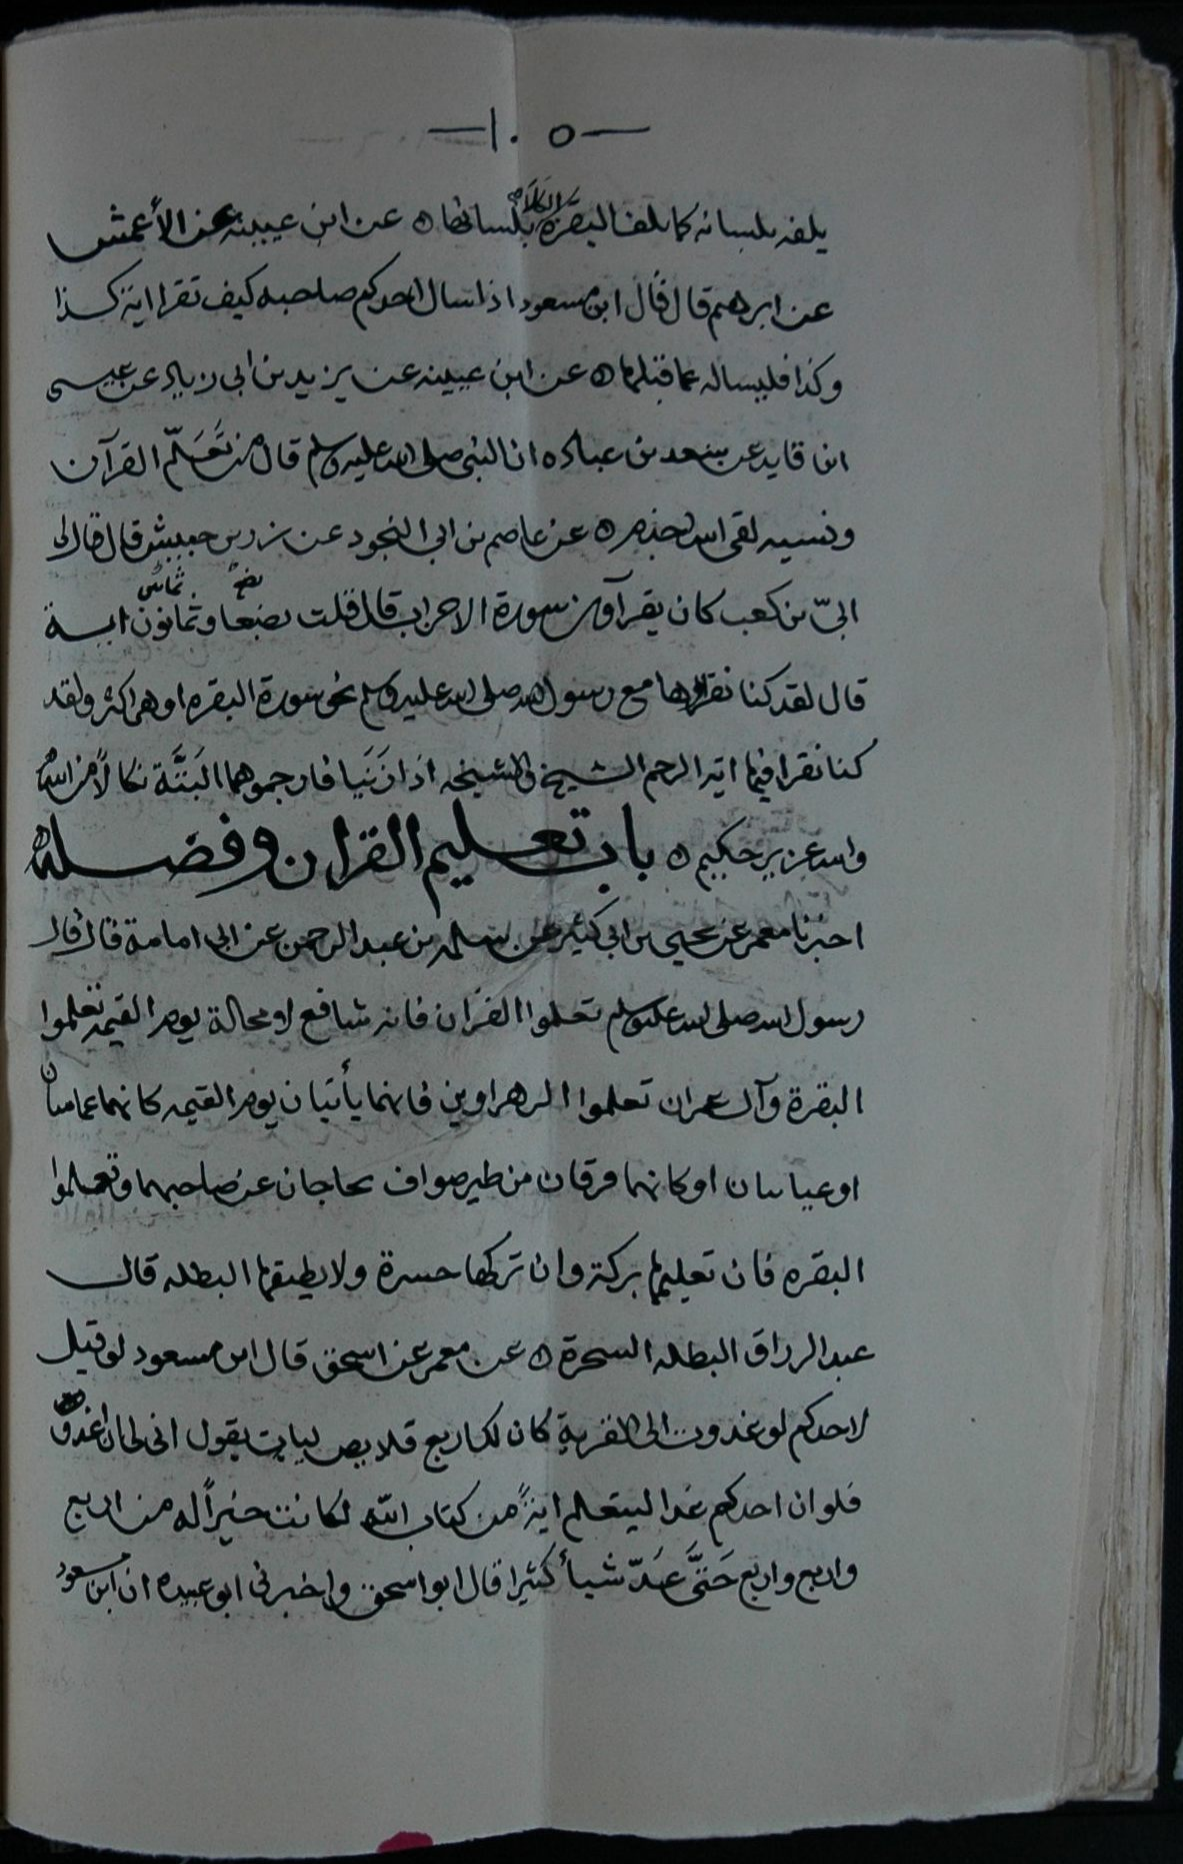 — ١٠٥ —
يلفه بلسانه كما تلف البقرة الكلأ بلسانها ه عن ابن عيينه عن الأعمش
عن ابرهيم قال قال ابن مسعود اذا سال احدكم صاحبه كيف تقرا اية كذا
وكذا فليساله عما قبلها ه عن ابن عيينه عن يزيد بن ابى زياد عن عيسى
ابن قايد عن سعد بن عباده ان النبى صلى الله عليه وسلم قال من تَعَلّم القرآن
ونسيه لقى الله اجذم ه عن عاصم بن ابى النجود عن زر بن حبيش قال قال لى
ابىّ بن كعب كاين يقرآون سورة الاحزاب قال قلت بضعا وثمانون اية
بضع ثمانين
قال لقد كنا نقراها مع رسول الله صلى الله عليه وسلم نحو سورة البقره او هى اكثر ولقد
كنا نقرا فيها اية الرجم الشيخ والشيخه اذا زَنَيا فارجموهما البَتَّة نكالاً من الله
والله عزيز حكيم ه باب تعليم القران وفضله
اخبرنا معمر عن يحيى بن ابى كثير عن سلمه بن عبد الرحمن عن ابى امامة قال قال
رسول الله صلى الله عليه وسلم تعلموا القران فانه شافع لا محالة يوم القيمه تعلموا
البقرة وآل عمران تعلموا الزهراوين فانهما يأتيان يوم القيمه كانهما غمامتان
او غيايتان او كانهما فرقان من طير صواف يحاجان عن صاحبهما وتعلموا
البقره فان تعليمها بركة وان تركها حسرة ولا يطيقها البطله قال
عبد الرزاق البطله السحرة ه عن معمر عن اسحق قال ابن مسعود لو قيل
لاحدكم لو غدوت الى القرية كان لك اربع قلايص لبات يقول انى لحان اغدو
فلو ان احدكم غدا ليتعلم ايةً من كتاب الله لكانت خيراً له من اربع
واربع واربع حَتَّى عَدّ شيأ كثيرا قال ابو اسحق واخبرنى ابو عبيده ان ابن مسعود